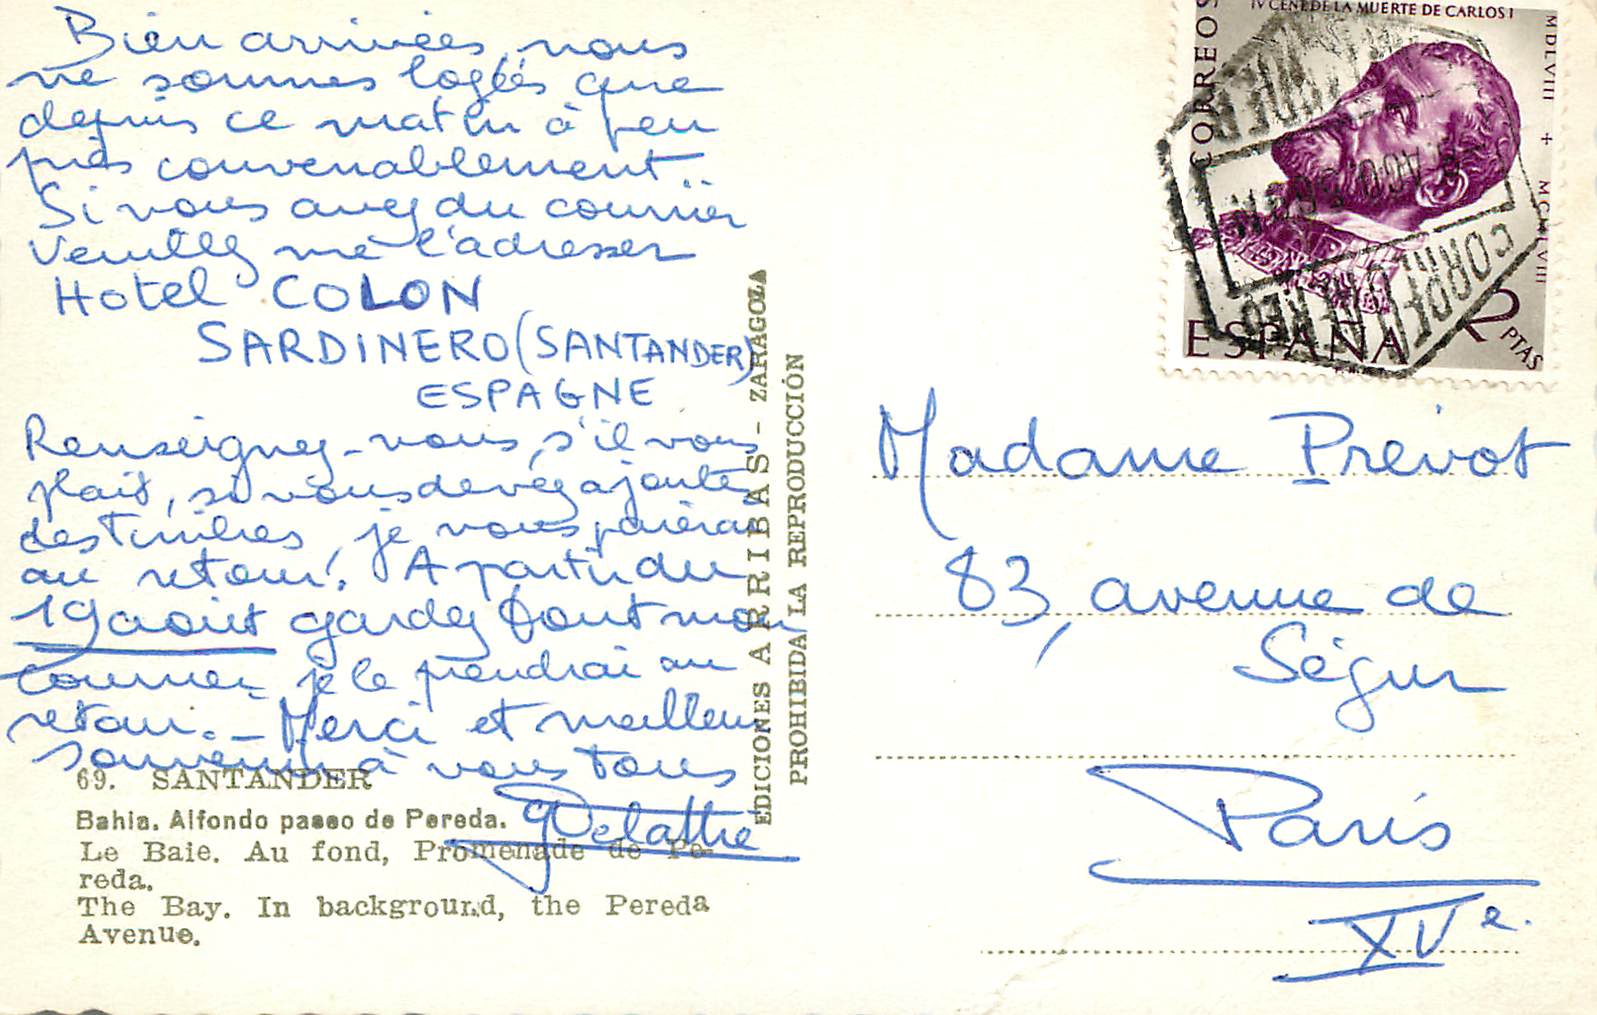 Bien arrivées, nous
ne sommes logées que
depuis ce matin à peu
près convenablement.
Si vous avez du courrier
veuillez me l'adresser
Hotel COLON
SARDINERO (SANTANDER)
ESPAGNE
Renseignez-vous, s'il vous
plait, si vous devez ajouter
des timbres, je vous paierai
au retour. A partir du
19 aout gardez tout mon
courrier, je le prendrai au
retour. - Merci et meilleur
souvenir à vous tous
Delattre
69. SANTANDER
Bahia. Alfondo paseo de Pereda.
Le Baie. Au fond, Promenade de Pe-
reda.
The Bay. In background, the Pereda
Avenue.
EDICIONES ARRIBAS - ZARAGOZA
PROHIBIDA LA REPRODUCCIÓN
IV CENT DE LA MUERTE DE CARLOS I
CORREOS
MDLVIII + MCMLVIII
ESPAÑA
2 PTAS
CORREO AEREO
Madame Prévot
83, avenue de
Ségur
Paris
XVe.